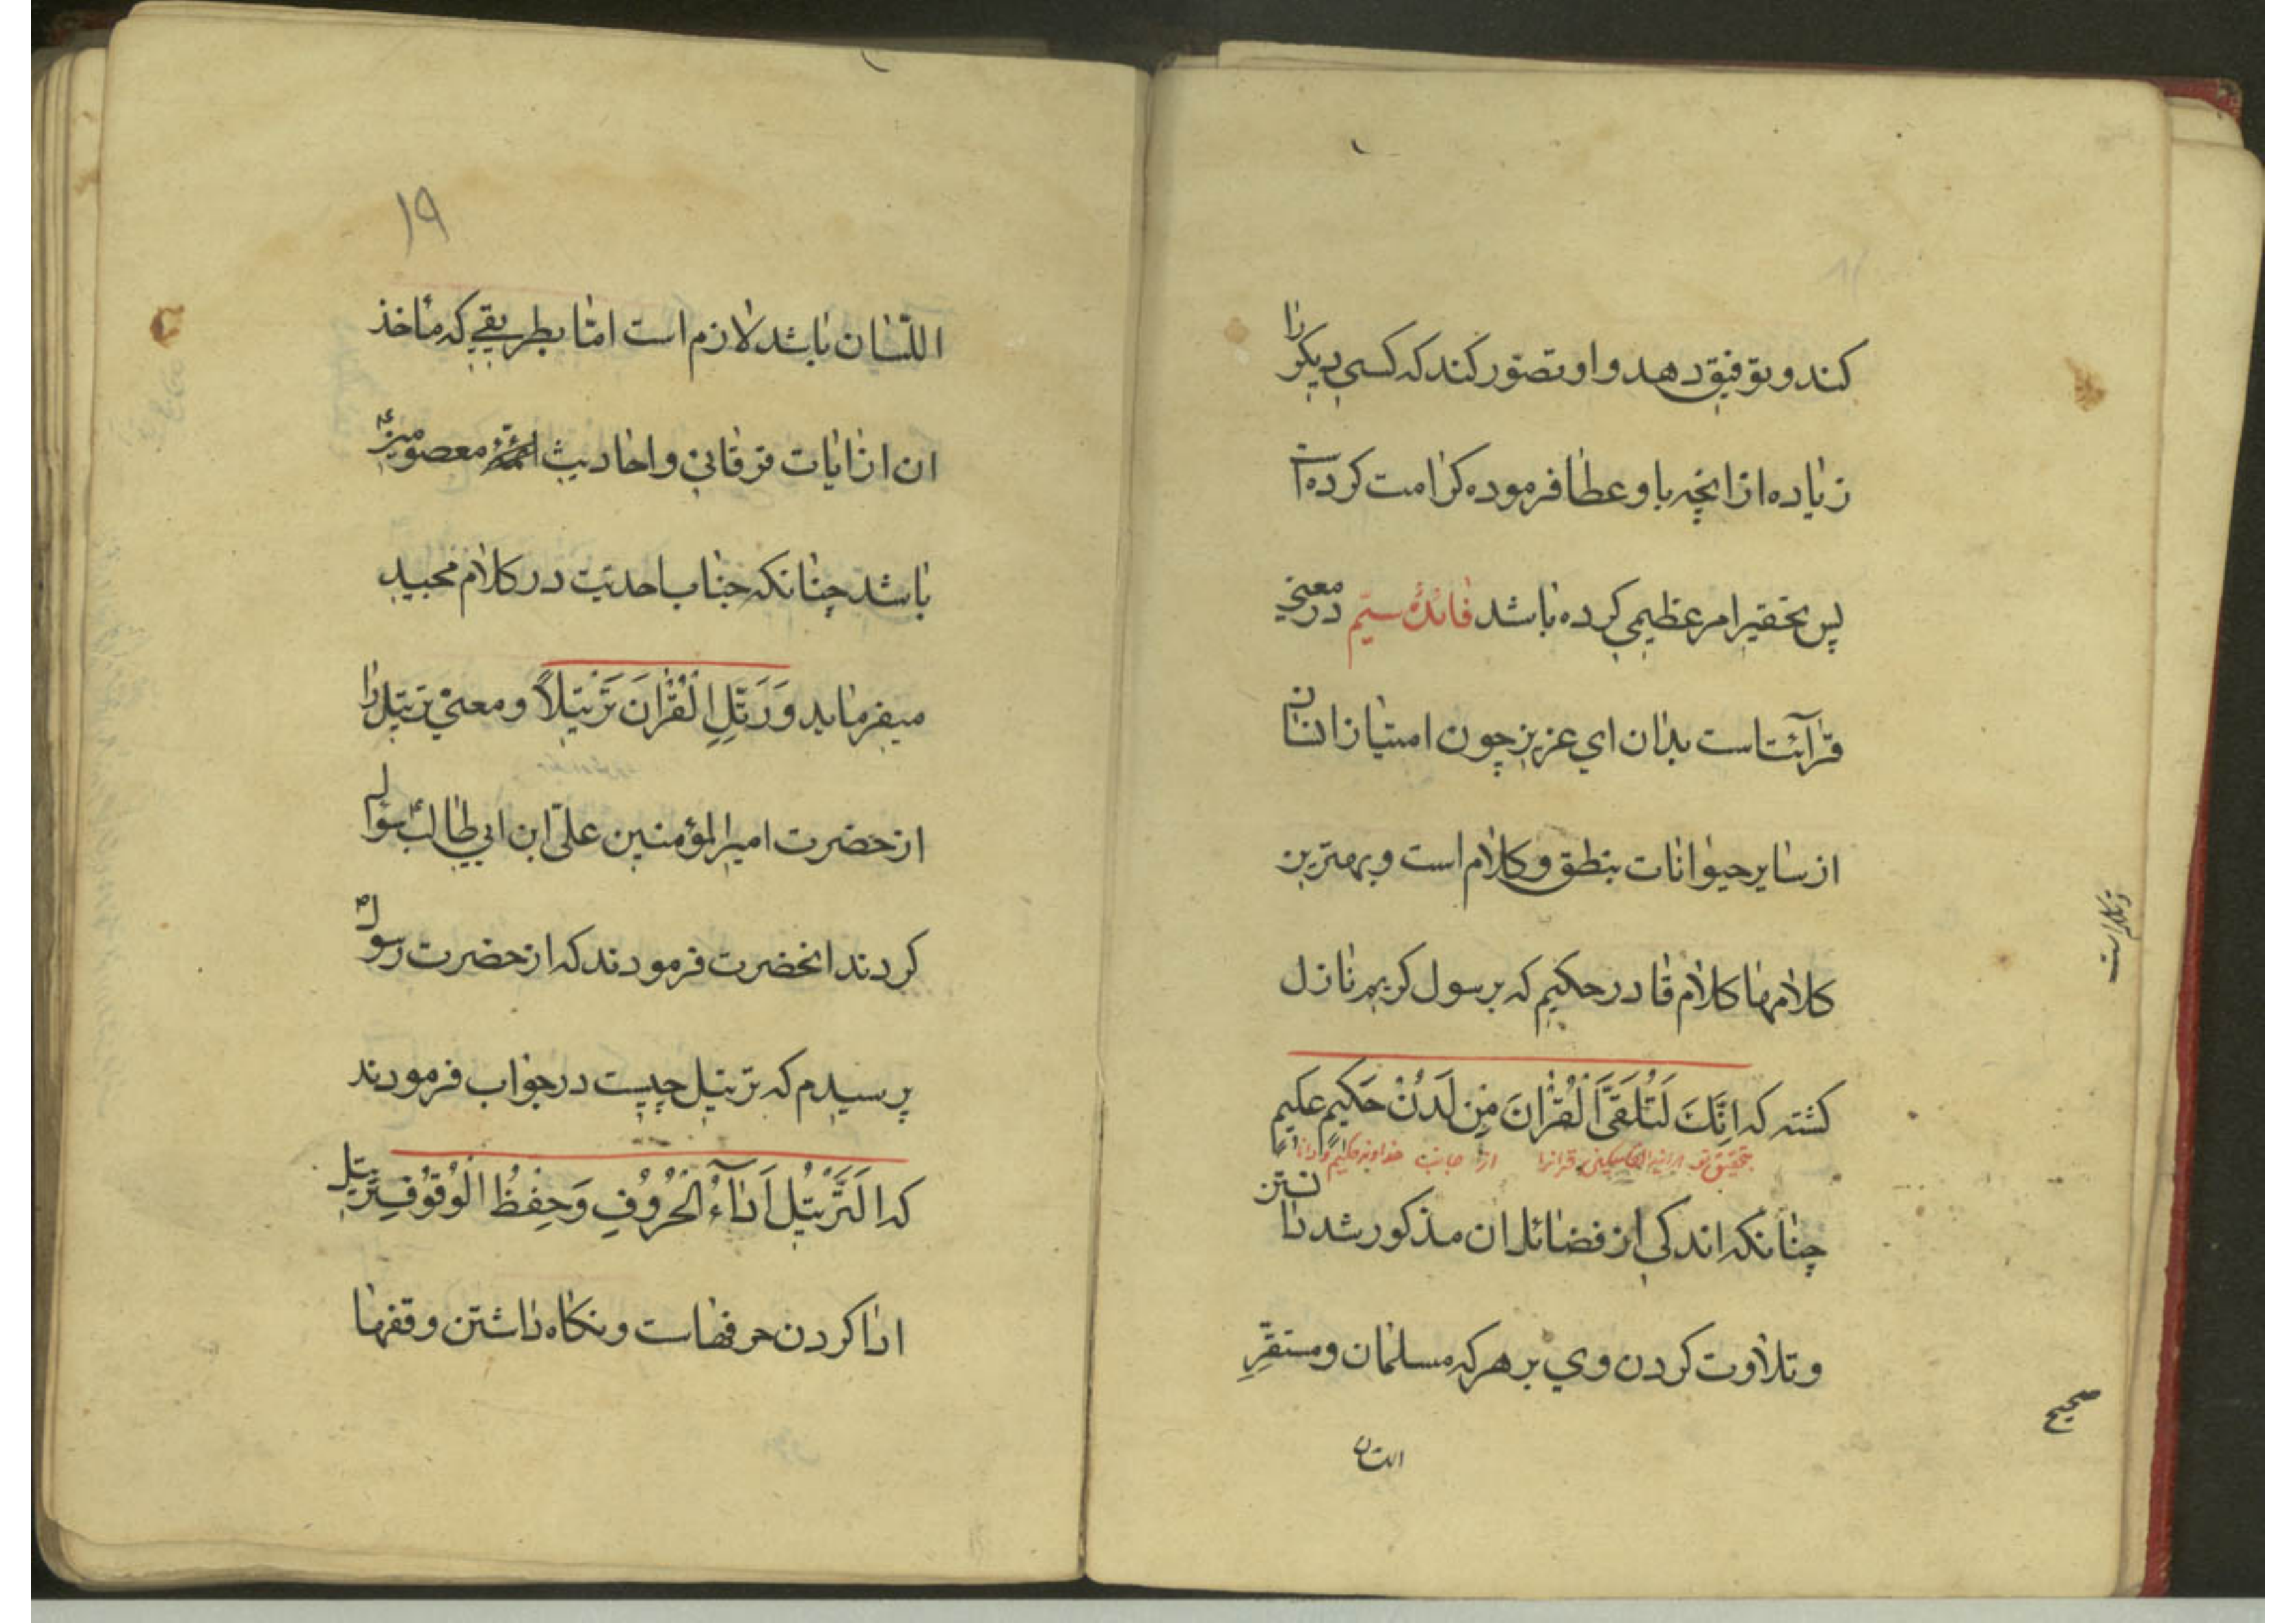 کند و توفیق دهد و او تصور کند که کسی دیکر را
زیاده از انچه باو عطا فرموده کرامت کرده است
پس تحقیر امر عظیمی کرده باشد فائدۀ سیّم در معنی
قرآئت است بدان ای عزیز چون امتیاز انسان
از سایر حیوانات بنطق و کلام است و بهترین
وتکلم است
کلامها کلام قادر حکیم که برسول کریم نازل
کشته که اِنَّكَ لَتُلَقَّىَ الْقُرْانَ مِنِ لَدُنْ حَكيمٍ عليمٍ
بتحقیق تو قرانرا از جانب خداوند حکیم و دانا
چنانکه اندکی از فضائل ان مذکور شد دانستن
و تلاوت کردن وی بر هر که مسلمان و مستقرِّ
صحیح
اللسان
١٩
اللّسان باشد لازم است امّا بطریقی که مأخذ
ان از ایات فرقانی و احادیث ائمّۀ معصومین ع
باشد چنانکه جناب احدیّت در کلام مجید
میفرماید وَ رَتِّلِ الْقُرْانَ تَرْتيلاً و معنی ترتیل را
از حضرت امیر المؤمنین علیّ ابن ابی طالبؑ سؤال
کردند انحضرت فرمودند که از حضرت رسولؐ
پرسیدم که ترتیل چیست در جواب فرمودند
که اَلتَّرْتيْلُ اَدٰآءُ الْحُرُوْفِ وَ حِفْظُ الْوُقُوْفِ ترتیل
ادا کردن حرفهاست و نکاه داشتن وقفها